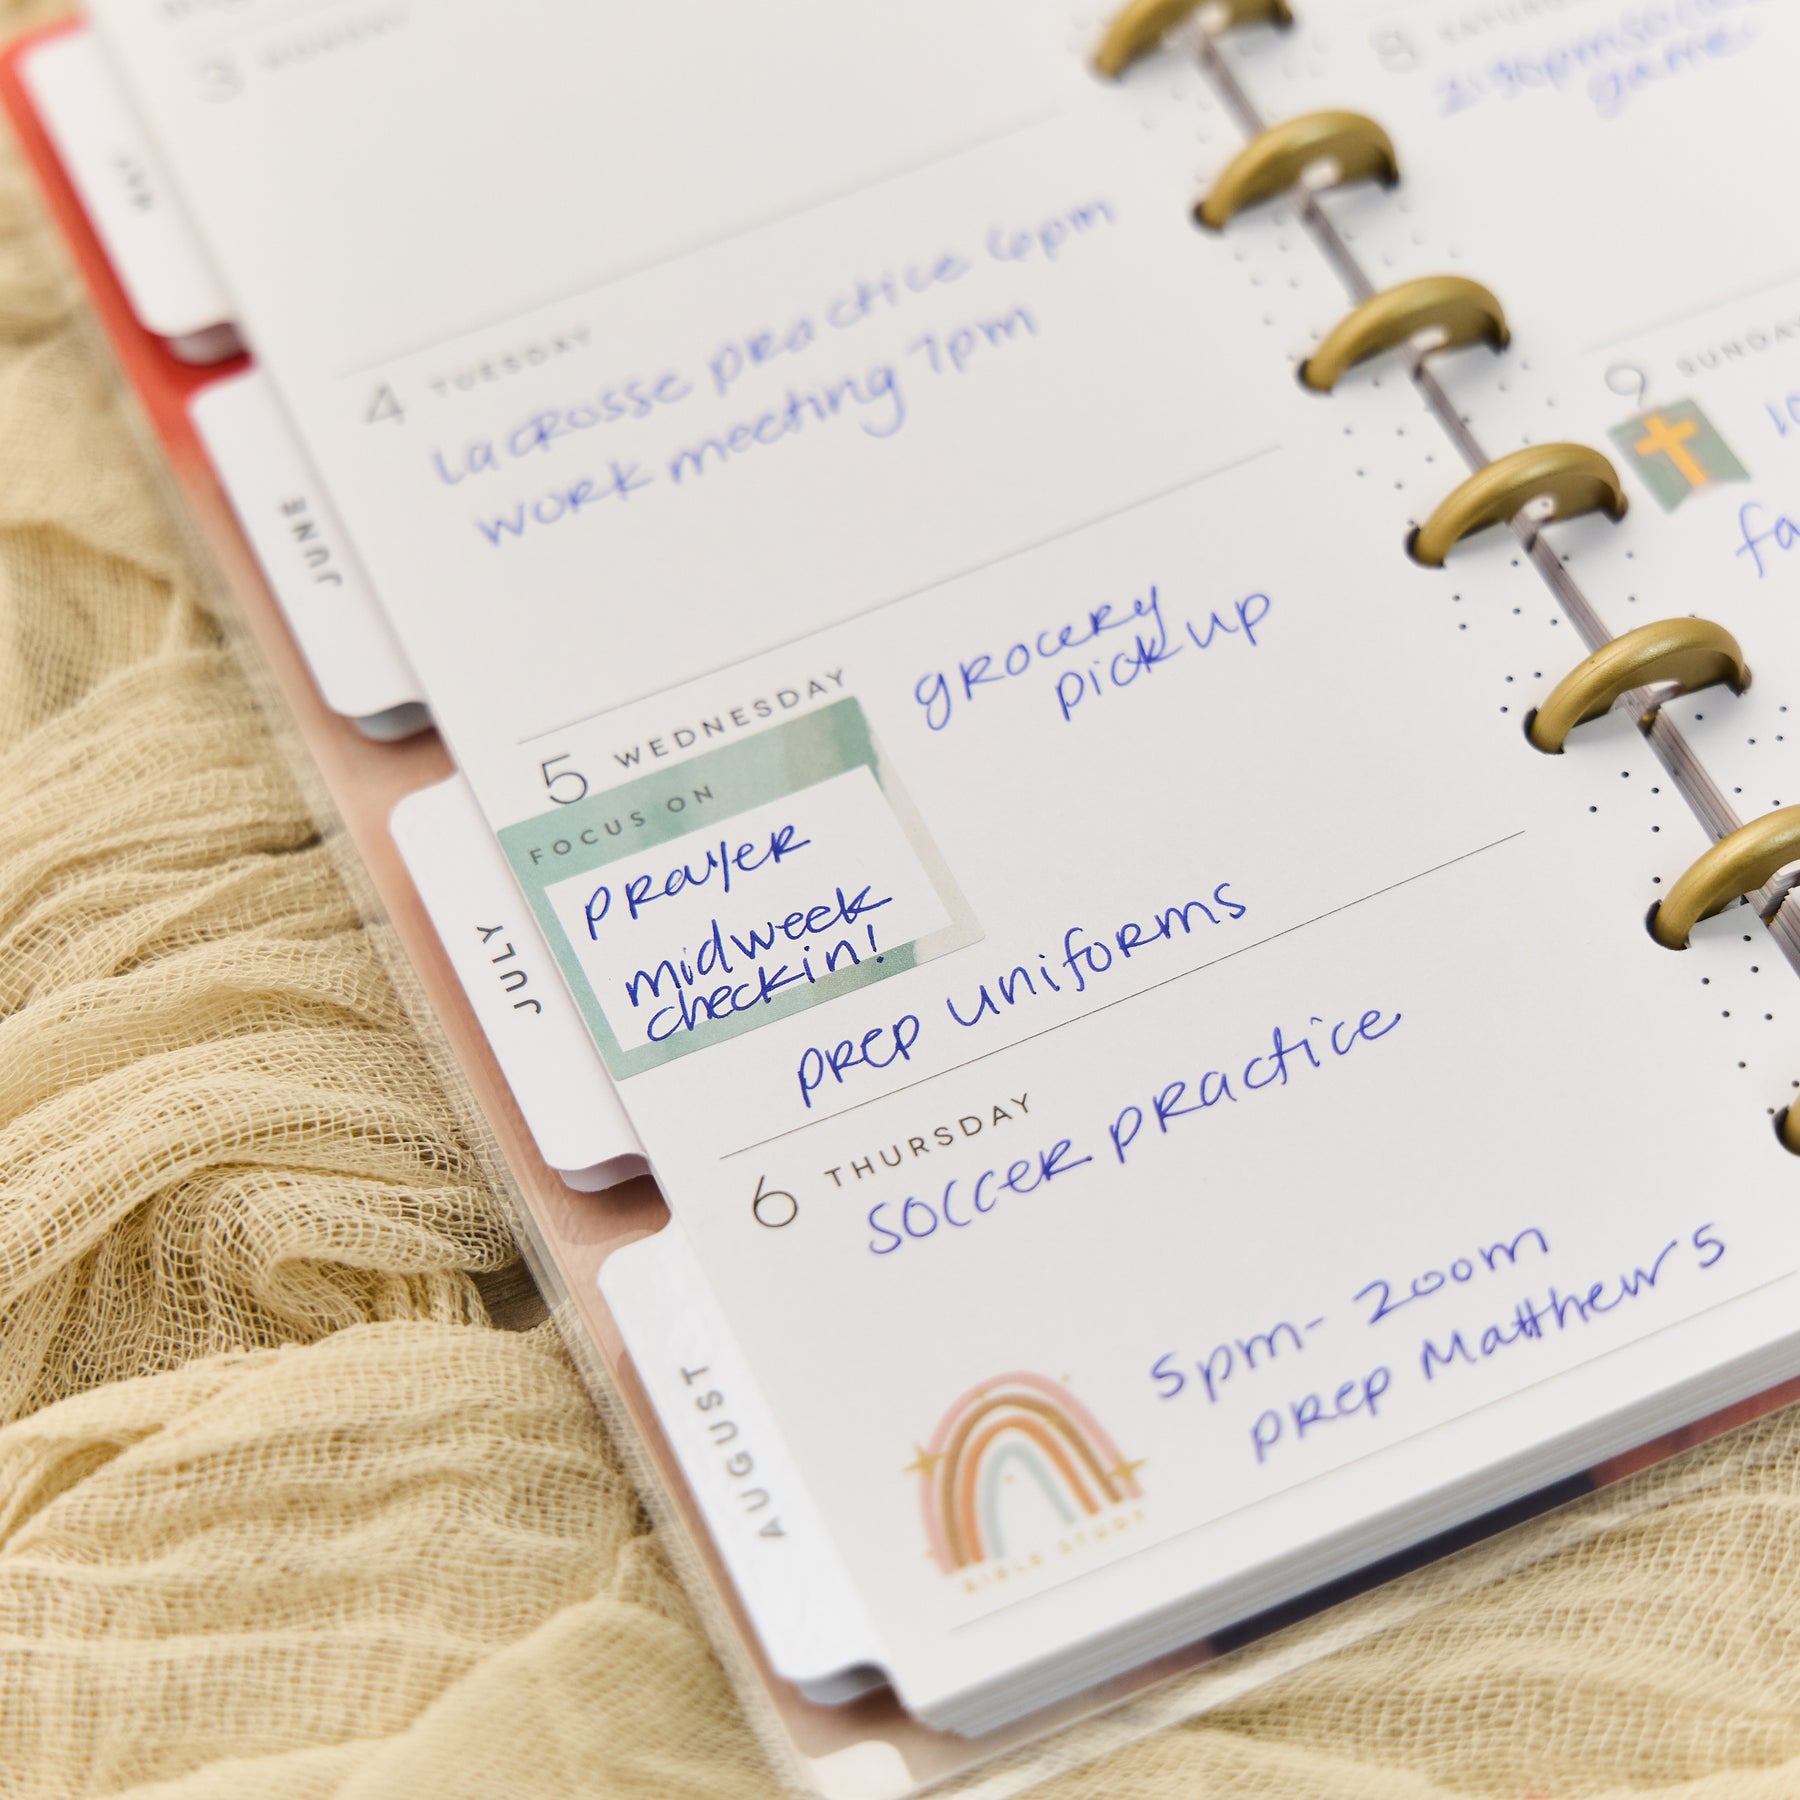 3 MONDAY
4 TUESDAY
lacrosse practice 6pm
work meeting 7pm
5 WEDNESDAY
grocery
pick up
FOCUS ON
prayer
midweek
checkin!
prep uniforms
6 THURSDAY
soccer practice
5pm - zoom
prep Matthew 5
BIBLE STUDY
8 SATURDAY
game
9 SUNDAY
MAY
JUNE
JULY
AUGUST